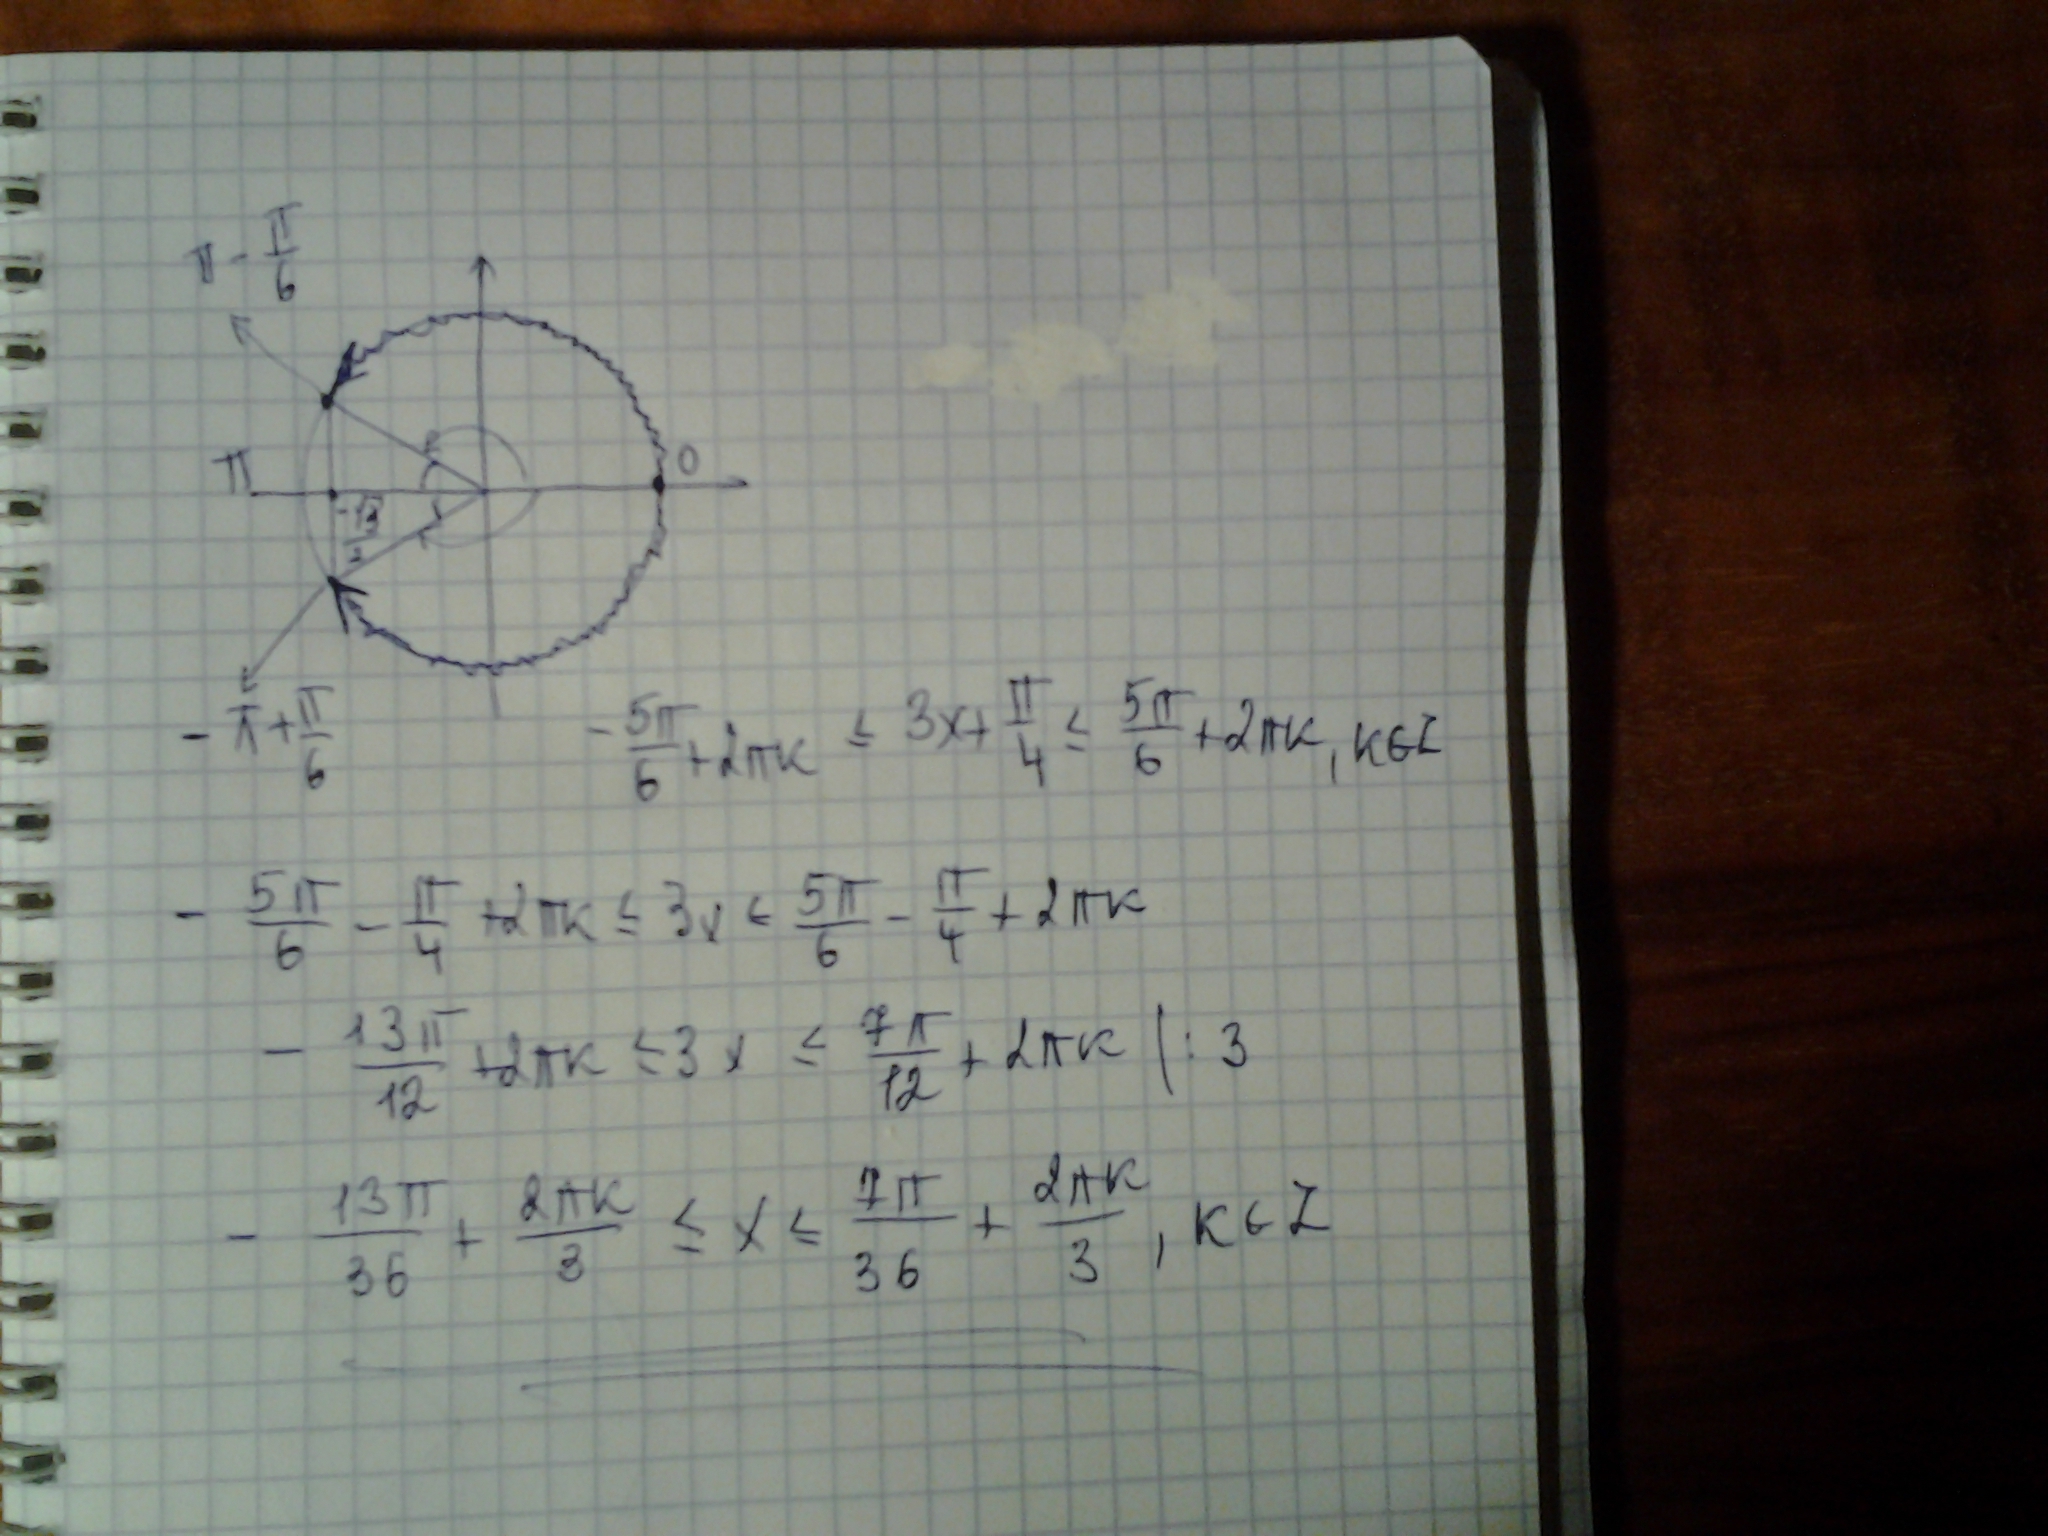 π - π/6
0
π
-√3/2
-π + π/6
-5π/6 + 2πк ≤ 3x + π/4 ≤ 5π/6 + 2πк, к∈Z
- 5π/6 - π/4 + 2πк ≤ 3x ≤ 5π/6 - π/4 + 2πк
- 13π/12 + 2πк ≤ 3x ≤ 7π/12 + 2πк | : 3
- 13π/36 + 2πк/3 ≤ x ≤ 7π/36 + 2πк/3, к∈Z